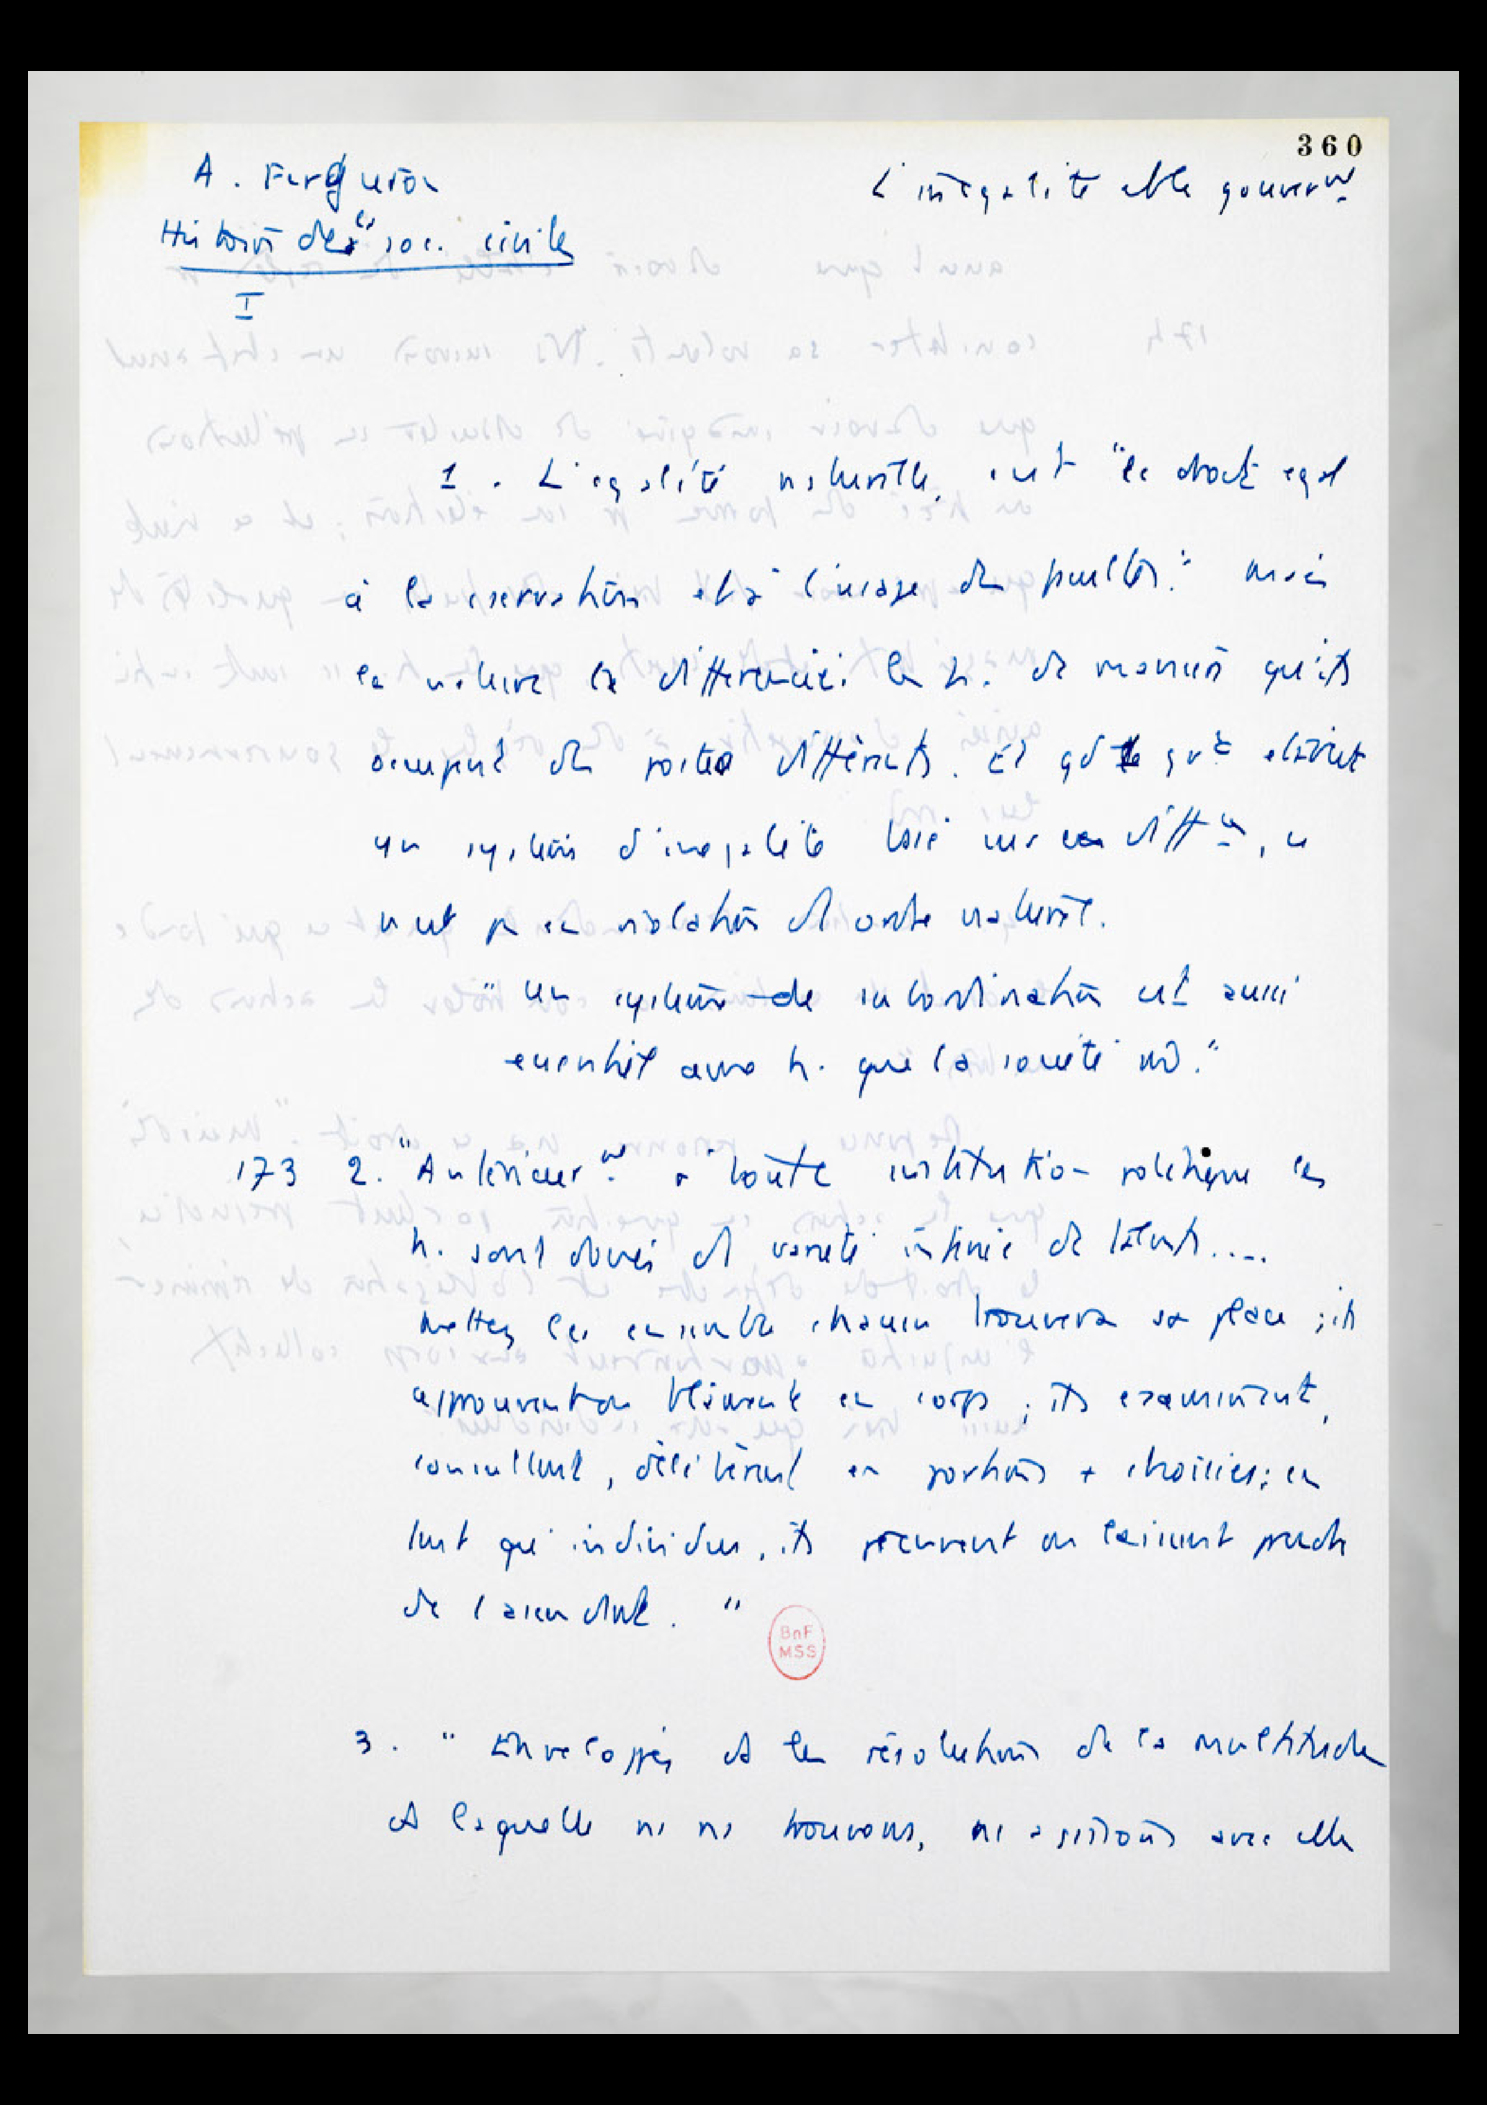 360
A. Ferguson
L'inégalité et le gouvernt
Histoire de la soc. civile
I
1. L'égalité naturelle, c'est "le droit égal
à la conservation et à l'usage des facultés." mais
la nature a différencié les h. de manière qu'ils
occupent des postes différents. Et qd on établit
un système d'inégalité basé sur ces diff, ce
n'est pas en violation de l'ordre naturel.
"Un système de subordination est aussi
essentiel aux h. que la société".
173 2. "Antérieurt à toute institution politique les
h. sont doués d'1 variété infinie de talents....
mettez les ensemble chacun trouvera sa place ; ils
approuvent ou blâment en corps ; ils examinent,
consultent, délibèrent en portions + choisies ; en
tant qu'individus, ils prennent ou laissent prendre
de l'ascendant."
BnF
MSS
3. "Enveloppés ds les résolutions de la multitude
ds laquelle ns ns trouvons, ns agissons avec elle